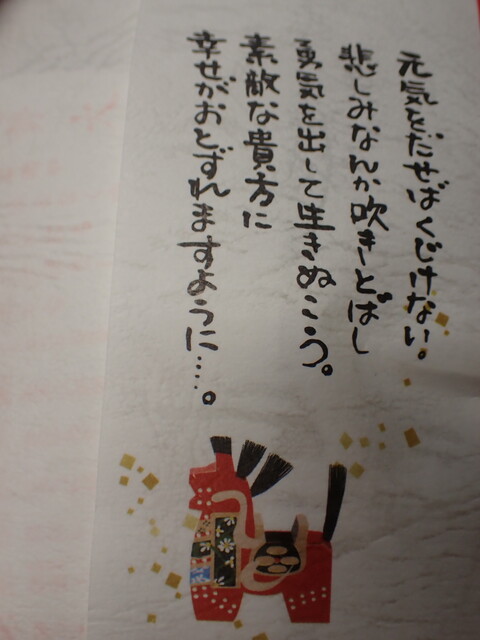 元気をだせばくじけない。
悲しみなんか吹きとばし
勇気を出して生きぬこう。
素敵な貴方に
幸せがおとずれますように……。